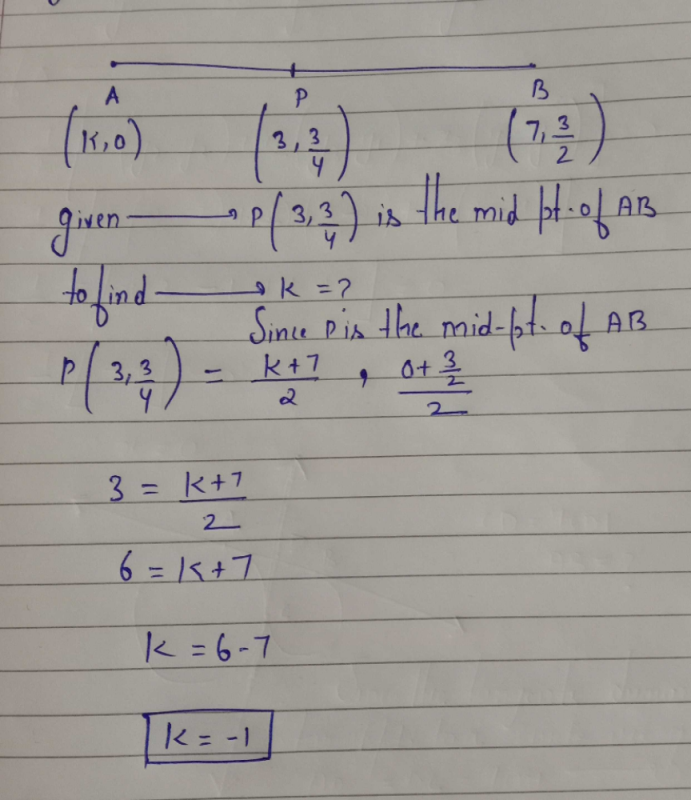 A P B
(K,0) (3, 3/4) (7, 3/2)
given → P(3, 3/4) is the mid pt. of AB
to find → K = ?
Since P is the mid-pt. of AB
P(3, 3/4) = K+7/2 , 0+3/2/2
3 = K+7/2
6 = K+7
K = 6-7
K = -1